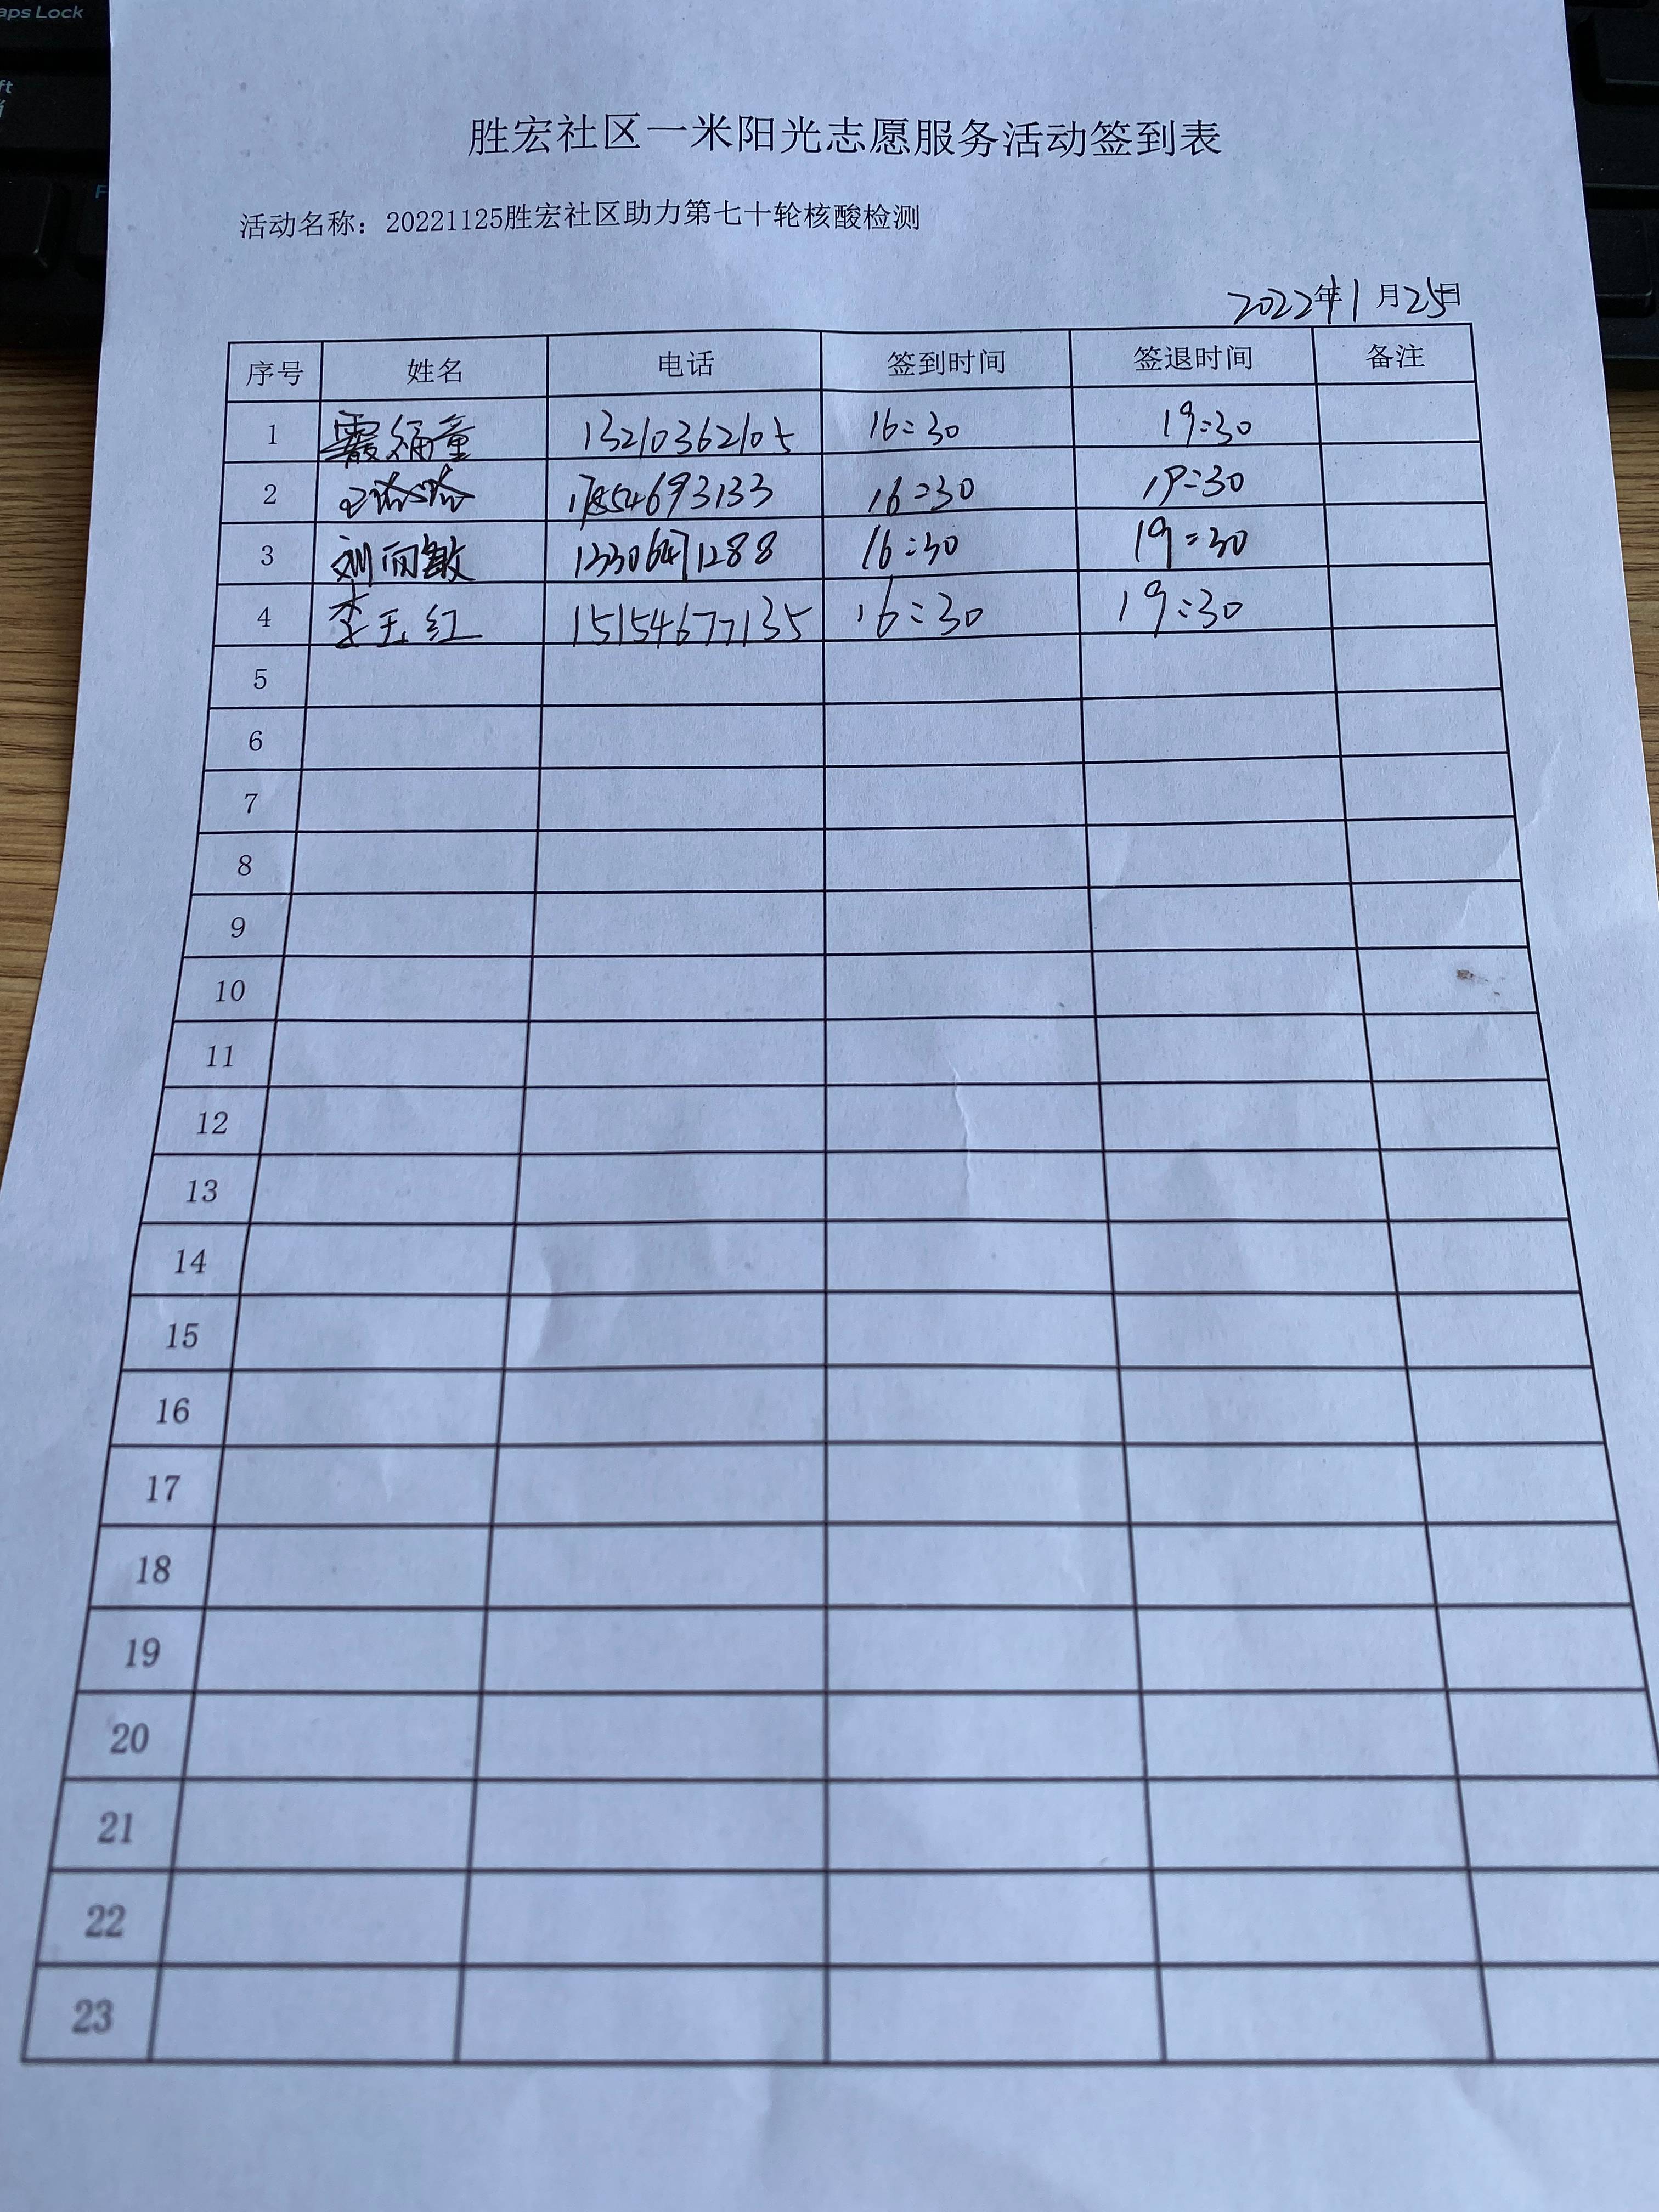 aps Lock
胜宏社区一米阳光志愿服务活动签到表
活动名称：20221125胜宏社区助力第七十轮核酸检测
2022年11月25日
序号 姓名 电话 签到时间 签退时间 备注
1 13210362105 16:30 19:30
2 17854693133 16:30 19:30
3 刘丽敏 13306471288 16:30 19:30
4 李玉红 15154677135 16:30 19:30
5
6
7
8
9
10
11
12
13
14
15
16
17
18
19
20
21
22
23